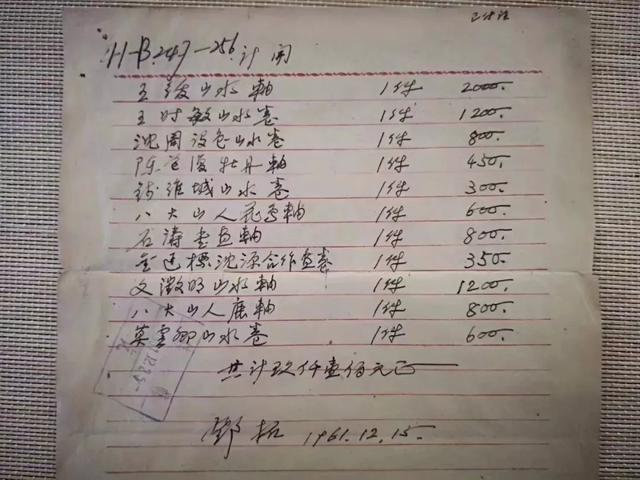 H-B247-256 计开
王绂山水軸 1件 2000.-
王时敏山水卷 1件 1200.-
沈周设色山水卷 1件 800.-
陈道復牡丹軸 1件 450.-
钱维城山水卷 1件 300.-
八大山人花鸟軸 1件 600.-
石涛画軸 1件 800.-
金廷標沈源合作画卷 1件 350.-
文徵明山水軸 1件 1200.-
八大山人鹿軸 1件 800.-
莫雲卿山水卷 1件 600.-
共计玖仟壹佰元正
鄧拓 1961.12.15.